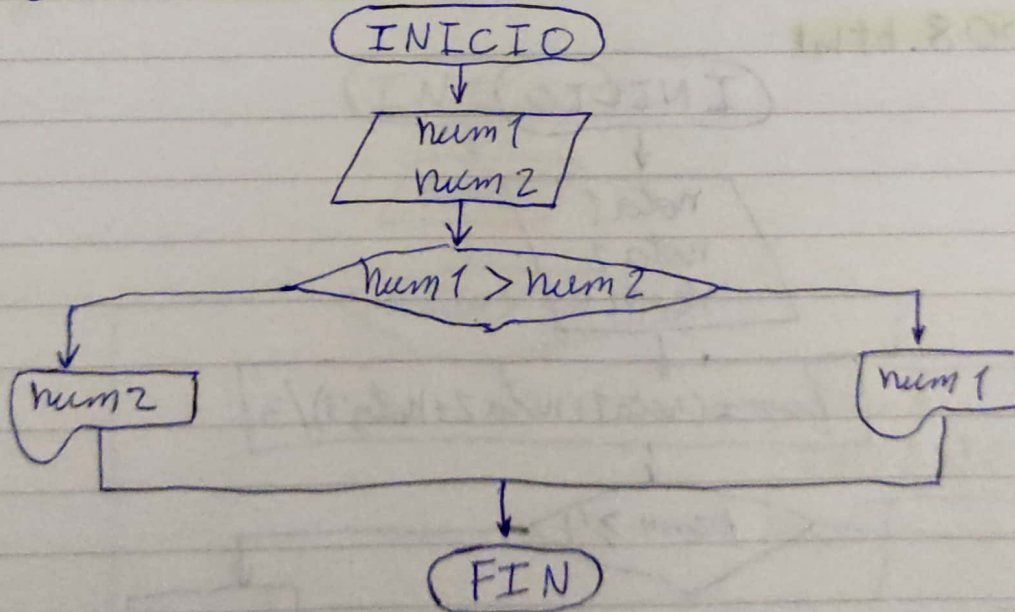 INICIO
num1
num2
num1 > num2
num2
num1
FIN